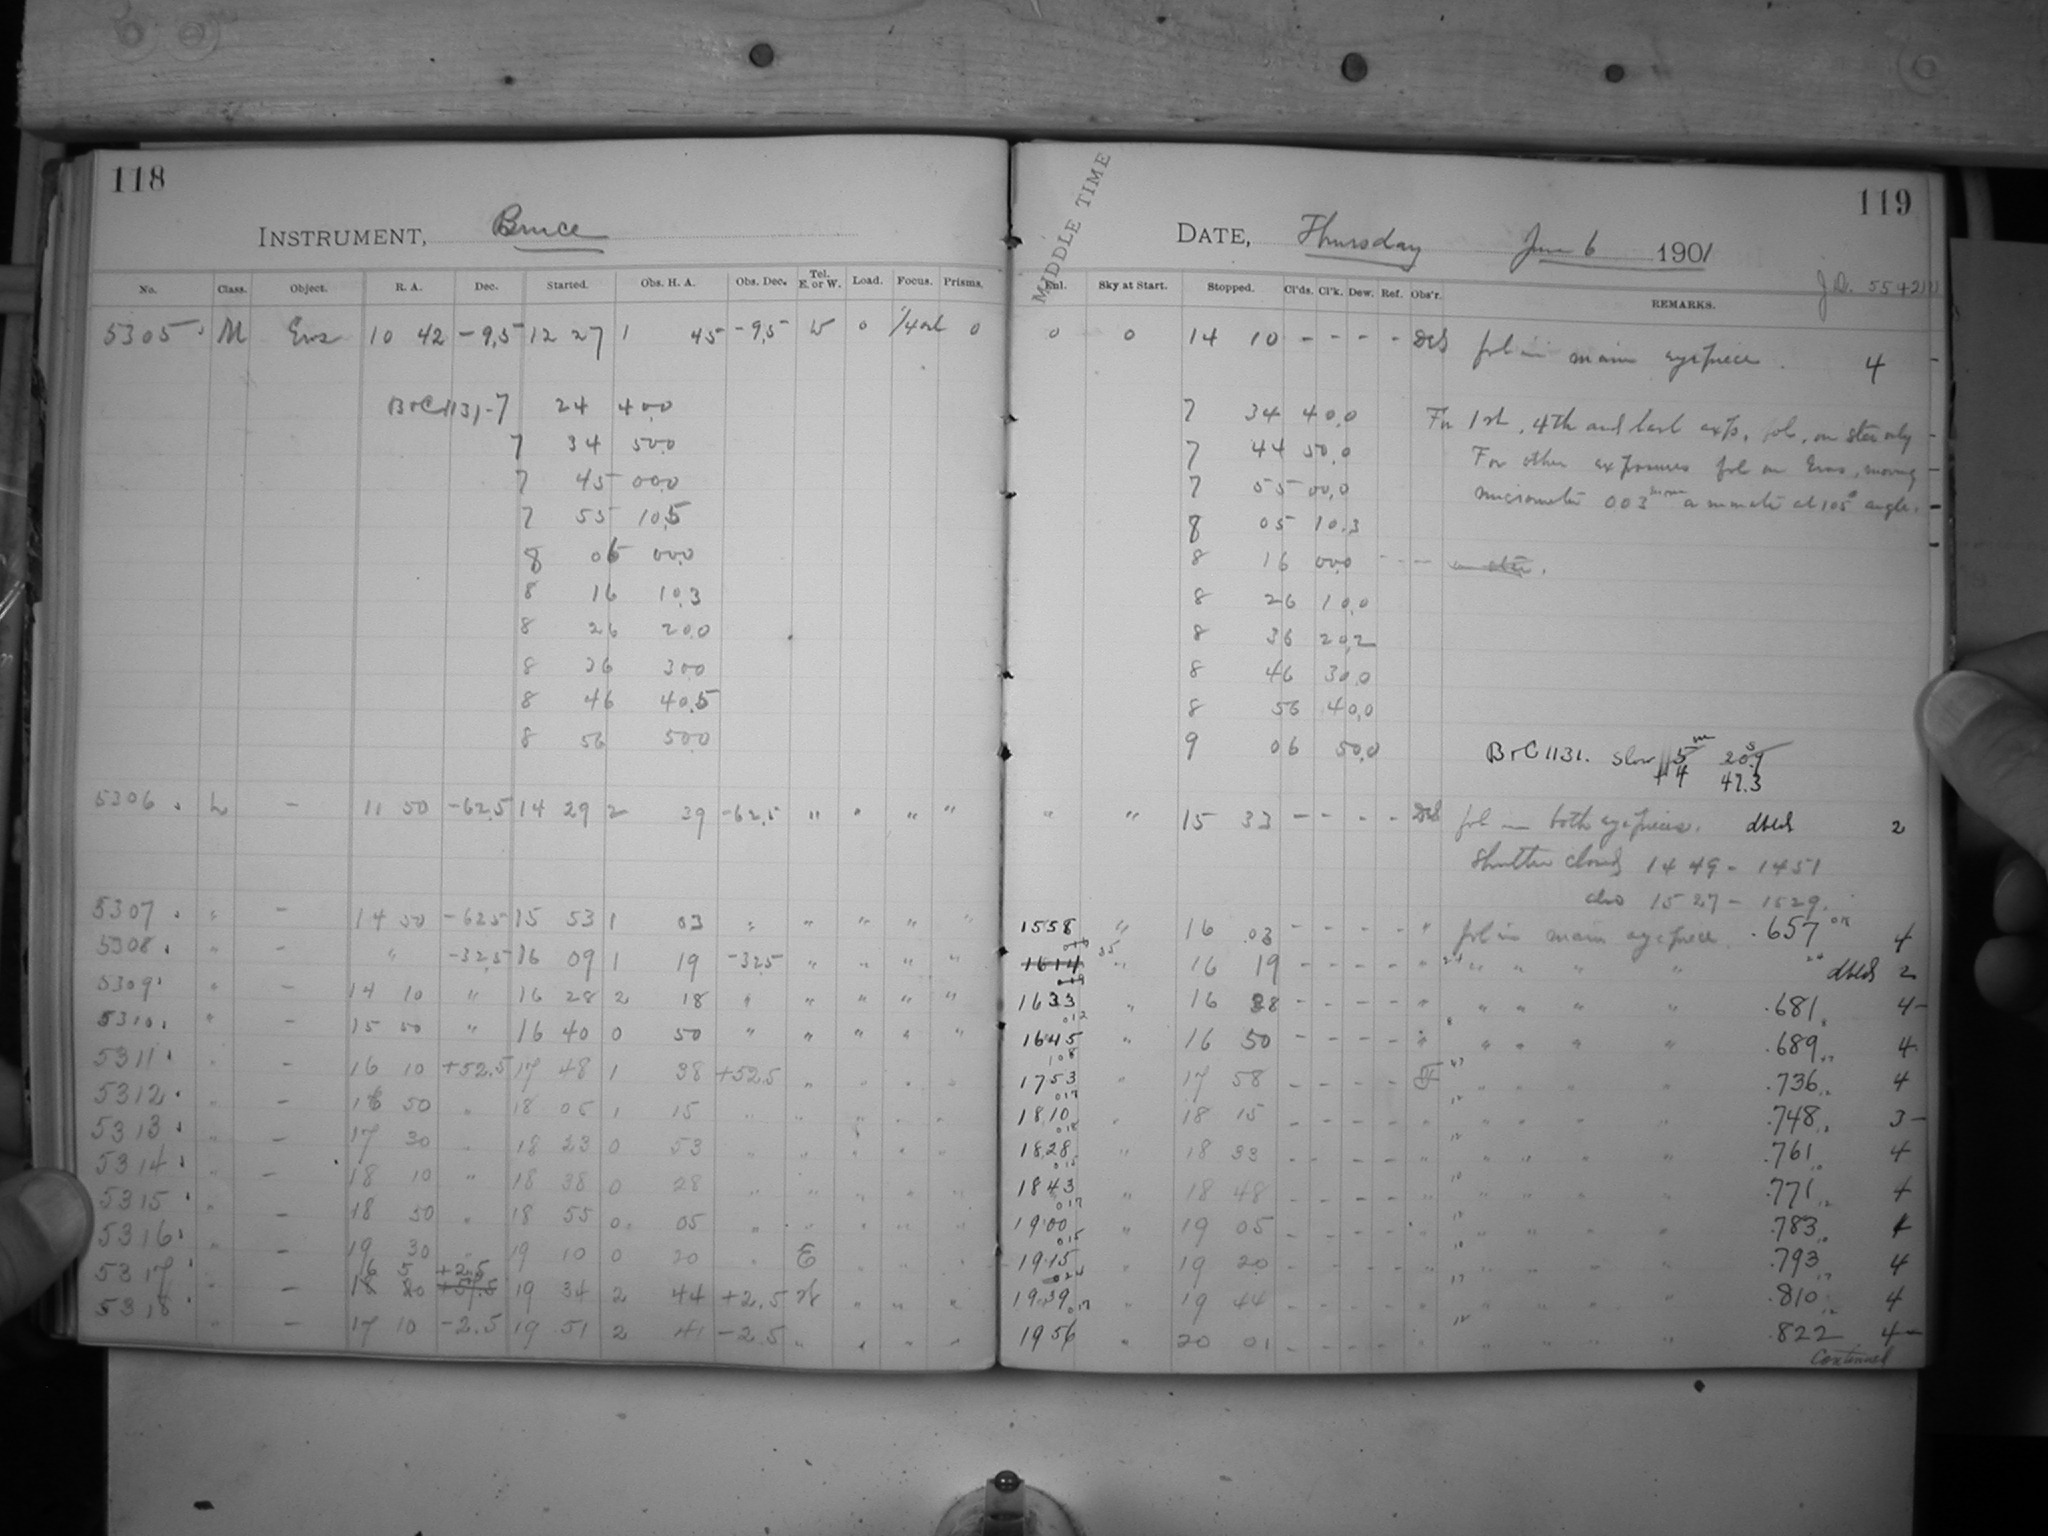 118
INSTRUMENT, Bruce
No. Class. Object. R. A. Dec. Started. Obs. H. A. Obs. Dec. Tel. E. or W. Load. Focus. Prisms.
5305 M Eros 10 42 -9.5 12 27 1 45 -9.5 W 0 0
BrC 1131 - 7 24 40.0
7 34 50.0
7 45 00.0
7 55 10.5
8 06 00.0
8 16 10.3
8 26 20.0
8 36 30.0
8 46 40.5
8 56 50.0
5306 L - 11 50 -62.5 14 29 2 39 -62.5 " " " "
5307 " - 14 50 -62.5 15 53 1 03 " " " " "
5308 " - " -32.5 16 09 1 19 -32.5 " " " "
5309 " - 14 10 " 16 28 2 18 " " " " "
5310 " - 15 50 " 16 40 0 50 " " " " "
5311 " - 16 10 +52.5 17 48 1 38 +52.5 " " " "
5312 " - 16 50 " 18 05 1 15 " " " " "
5313 " - 17 30 " 18 23 0 53 " " " " "
5314 " - 18 10 " 18 38 0 28 " " " " "
5315 " - 18 50 " 18 55 0 05 " " " " "
5316 " - 19 30 " 19 10 0 20 " E " " "
16 50 +2.5
5317 " - 18 20 +57.5 19 34 2 44 +2.5 W " " "
5318 " - 17 10 -2.5 19 51 2 41 -2.5 " " " "
MIDDLE TIME
119
DATE, Thursday June 6 1901
J.D. 55421
Enl. Sky at Start. Stopped. Cl'ds. Cl'k. Dew. Ref. Obs'r. REMARKS.
0 0 14 10 - - - - fol in main eyepiece. 4
7 34 40.0 For 1st, 4th and last exps. fol. on star only
7 44 50.0 For other exposures fol on Eros, moving
7 55 00.0 micrometer 0.03 a minute at 105° angle.
8 05 10.3
8 16 00.0 - - - on star.
8 26 10.0
8 36 20.2
8 46 30.0
8 56 40.0
9 06 50.0 BrC 1131. slow 5m 20.9s
+ 4 47.3
" " 15 33 - - - - fol in both eyepieces. dbld 2
Shutter closed 14 49 - 14 51
also 15 27 - 15 29.
1558 " 16 03 - - - - " fol in main eyepiece. .657 4
1614 " 16 19 - - - - " " " " " dbld 2
1633 " 16 38 - - - - " " " " " .681 4-
1645 " 16 50 - - - - " " " " " .689 4
1753 " 17 58 - - - - F " " " " .736 4
1810 " 18 15 - - - - " " " " " .748 3-
1828 " 18 33 - - - - " " " " " .761 4
1843 " 18 48 - - - - " " " " " .771 4
1900 " 19 05 - - - - " " " " " .783 4
1915 " 19 20 - - - - " " " " " .793 4
1939 " 19 44 - - - - " " " " " .810 4
1956 " 20 01 - - - - " " " " " .822 4-
Continued